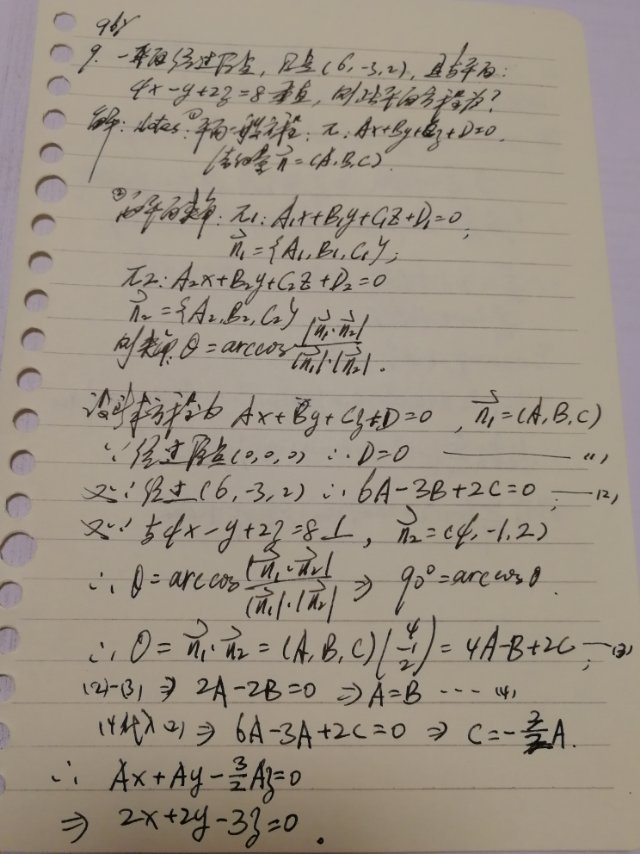 9. 一平面经过原点,且点(6,-3,2),且与平面:
4x-y+2z=8垂直,则此平面方程为?
解: Notes:①平面一般方程: π: Ax+By+Cz+D=0.
法向量 n⃗=(A,B,C)
②两平面夹角: π1: A1x+B1y+C1z+D1=0,
n⃗1={A1,B1,C1},
π2: A2x+B2y+C2z+D2=0
n⃗2={A2,B2,C2}
则夹角: θ=arccos |n⃗1·n⃗2|/|n⃗1|·|n⃗2|.
设所求方程为 Ax+By+Cz+D=0, n⃗1=(A,B,C)
∵经过原点(0,0,0) ∴D=0 ——(1)
又∵经过(6,-3,2) ∴6A-3B+2C=0; —(2)
又∵与4x-y+2z=8⊥, n⃗2=(4,-1,2)
∴ θ=arccos |n⃗1·n⃗2|/|n⃗1|·|n⃗2| ⇒ 90°=arccos0.
∴ 0=n⃗1·n⃗2=(A,B,C)(4 -1 2)=4A-B+2C; —(3)
(2)-(3) ⇒ 2A-2B=0 ⇒A=B ----(4)
(4)代入(2) ⇒ 6A-3A+2C=0 ⇒ C=-3/2A.
∴ Ax+Ay-3/2Az=0
⇒ 2x+2y-3z=0.